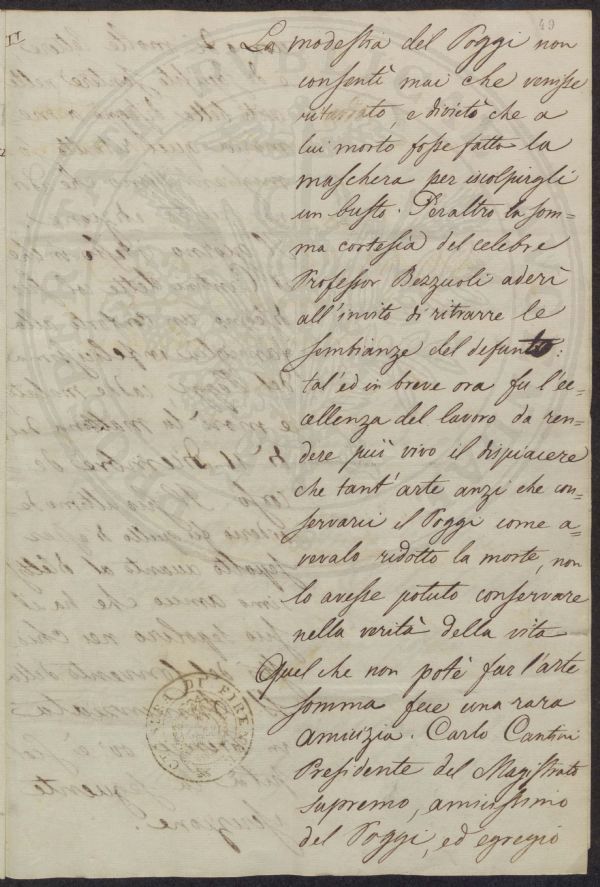 49
La modestia del Poggi non
consentì mai che venisse
ritrattato, e divietò che a
lui morto fosse fatto la
maschera per iscolpirgli
un busto. Peraltro la som=
ma cortesia del celebre
Professor Bezzuoli aderì
all'invito di ritrarre le
sembianze del defunto:
tal'ed in breve ora fu l'ec=
cellenza del lavoro da ren=
dere più vivo il dispiacere
che tant'arte anzi che con=
servarci il Poggi come a=
vevalo ridotto la morte, non
lo avesse potuto conservare
nella verità della vita
Quel che non potè far l'arte
somma fece una rara
amicizia. Carlo Cantini
Presidente del Magistrato
Supremo, amicissimo
del Poggi, ed egregio